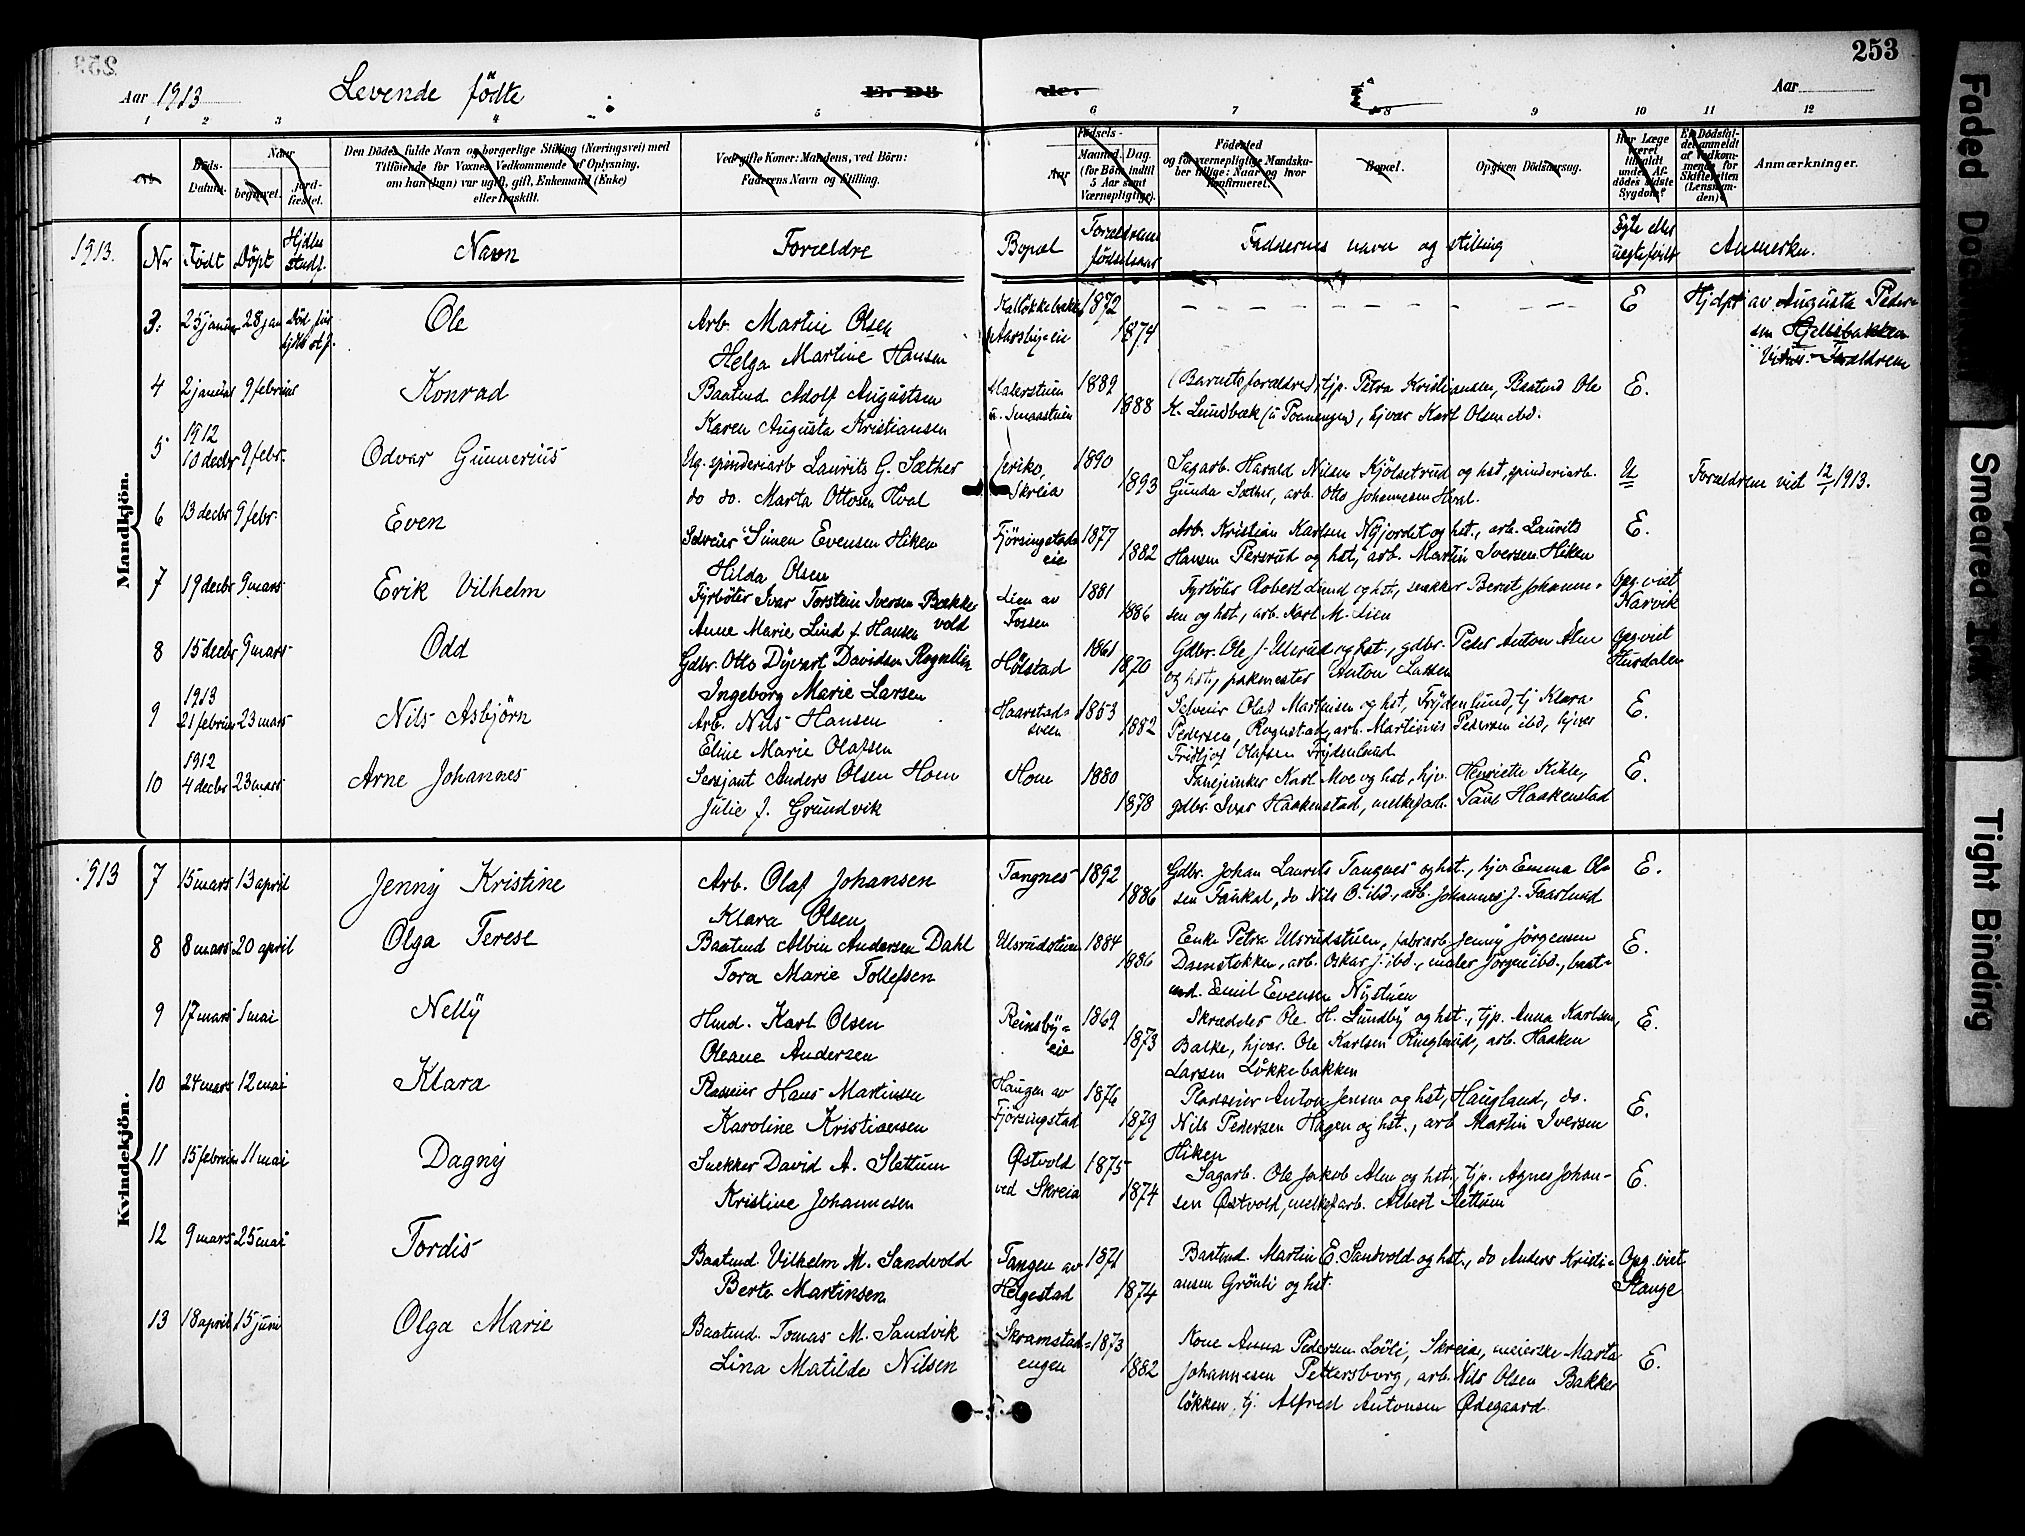 253
Aar 1913 Levende födte
Aar
1 2 3 4 5 6 7 8 9 10 11 12
Döds-Datum. Naar begravet. Jord-fæstet.
Den Dödes fulde Navn og borgerlige Stilling (Næringsvei) med
Tilföiende for Voxnes Vedkommende af Oplysning,
om han (hun) var ugift, gift, Enkemand (Enke)
eller fraskilt.
Ved gifte Koner: Mandens, ved Börn:
Faderens Navn og Stilling.
Födsels-
Aar Maaned (for Börn indtil 5 Aar samt Værnepligtige). Dag.
Födested
og for værnepligtige Mandskaber tillige: Naar og hvor konfirmeret.
Bopæl.
Opgiven Dödsaarsag.
Har Læge været tilkaldt under Afdödes sidste Sygdom?
Er Dödsfaldet anmeldt af Vedkommende for Skifteretten (Lensmanden)?
Anmærkninger.
1913. Nr Födt Döpt Hjdbs stadf. Navn Forældre Bopæl Forældrenes födselsaar Faddernes navn og stilling Egte eller uegte födt Anmerkn.
Mandkjön.
3. 25 januar 28 jan Död för hjdbs stf. Ole Arb. Martin Olsen 1872 E Hjdpt av Augusta Peder-
Helga Martine Hansen Aarsby-eie 1874 sen
4 2 januar 9 februar Konrad Baatmd Adolf Augustsen 1889 (Barnets forældre), tjp. Petra Kristiansen, Baatmd Ole E.
Karen Augusta Kristiansen u. Smaastuen 1888 K. Lundbæk (u Poenengen), hjvær Karl Olsen ibd.
1912
5 10 decbr 9 febr. Odvar Gunnerius Ug. spinderiarb Laurits G. Sæther Jeriko, 1890 Sagarb. Harald Nilsen Kjölsetrud og hst, spinderiarb. U Forældrene viet 12/1 1913.
do do. Marta Ottosen Hval Skreia 1893 Gunda Sæther, arb. Otto Johannesen Hval.
6 13 decbr 9 febr. Even Selveier Simen Evensen Hiken Fjörsingstad- 1877 Arb. Kristian Karlsen Nyjordet og hst., arb. Laurits E.
Hilda Olsen eie 1882 Hansen Persrud og hst, arb. Martin Iversen Hiken
7 19 decbr 9 mars Erik Vilhelm Fyrböter Ivar Torstein Iversen Bække- Lien av 1881 Fyrböter Robert Lund og hst, snekker Bernt Johanne- Opg. viet
vold
Anne Marie Lind f. Hansen Fossen 1886 sen og hst, arb. Karl M. Lien Narvik
8 15 decbr 9 mars Odd Gdbr. Otto Dyvart Davidsen Rognelin Hölstad 1861 Gdbr. Ole J. Ulsrud og hst., gdbr. Peder Anton Alm Opg. viet
Ingeborg Marie Larsen 1870 og hst, pakmester Anton Larsen Hurdalen
1913
9 21 februar 23 mars Nils Asbjörn Arb. Nils Hansen Haarstad- 1853 Selveier Olaf Martinsen og hst, Frydenlund, tj Klara E.
Eline Marie Olafsen sveen 1882 Pedersen, Rognstad, arb. Martinius Pedersen ibd, hjvær
Fridtjof Olafsen Frydenlund
1912
10 4 decbr 23 mars Arne Johannes Sersjant Anders Olsen Hom Hom 1880 Fanejunker Karl Moe og hst, hjv. Henriette Kihle, E.
Julie J. Grundvik 1878 gdbr. Ivar Haakenstad, melkefarb. Paul Haakenstad
1913
Kvindekjön.
7 15 mars 13 april Jenny Kristine Arb. Olaf Johansen Tangnes 1892 Gdbr. Johan Laurits Tangnes og hst., hjv Emma Ol- E.
Klara Olsen 1886 sen Faukal, do Nils O. ibd., arb. Johannes J. Faarlund
8 8 mars 20 april Olga Terese Baatmd Albin Andersen Dahl Ulsrudstuen 1884 Enke Petra Ulsrudstuen, fabrarb Jenny Jörgensen E.
Tora Marie Tollefsen 1886 Damstokken, arb. Oskar J. ibd., maler Jörgen ibd., baat-
md. Emil Evensen Nystuen
9 17 mars 1 mai Nelly Hmd. Karl Olsen Reinsby- 1869 Skrædder Ole H. Lundby og hst., tjp. Anna Karlsen, E.
Oleane Andersen eie 1873 Balke, hjvær. Ole Karlsen Ringlund, arb. Haaken
Larsen Lökkebakken
10 24 mars 12 mai Klara Pladseier Hans Martinsen Haugen av 1876 Pladseier Anton Jensen og hst, Haugland, do. E.
Karoline Kristiansen Fjörsingstad 1879 Nils Pedersen Hagen og hst., arb Martin Iversen
Hiken
11 15 februar 11 mai Dagny Snekker David A. Slettum Østvold 1875 Sagarb. Ole Jakob Alm og hst., tjp. Agnes Johan- E.
Kristine Johannesen ved Skreia 1874 sen Østvold, melkefarb. Albert Slettum
12 9 mars 25 mai Tordis Baatmd. Vilhelm M. Sandvold Tangen av 1871 Baatmd. Martin E. Sandvold og hst., do Anders Kristi- Opg. viet
Berte Martinsen Helgestad 1874 ansen Grönli og hst. Stange
13 18 april 15 juni Olga Marie Baatmd. Tomas M. Sandvik Skramstad- 1873 Kone Anna Pedersen Lövli, Skreia, meierske Marta E.
Lina Matilde Nilsen engen 1882 Johannesen Pettersborg, arb. Nils Olsen Bakker-
lökken, tj. Alfred Antonsen Ødegaard.
Faded Document
Smeared Ink
Tight Binding